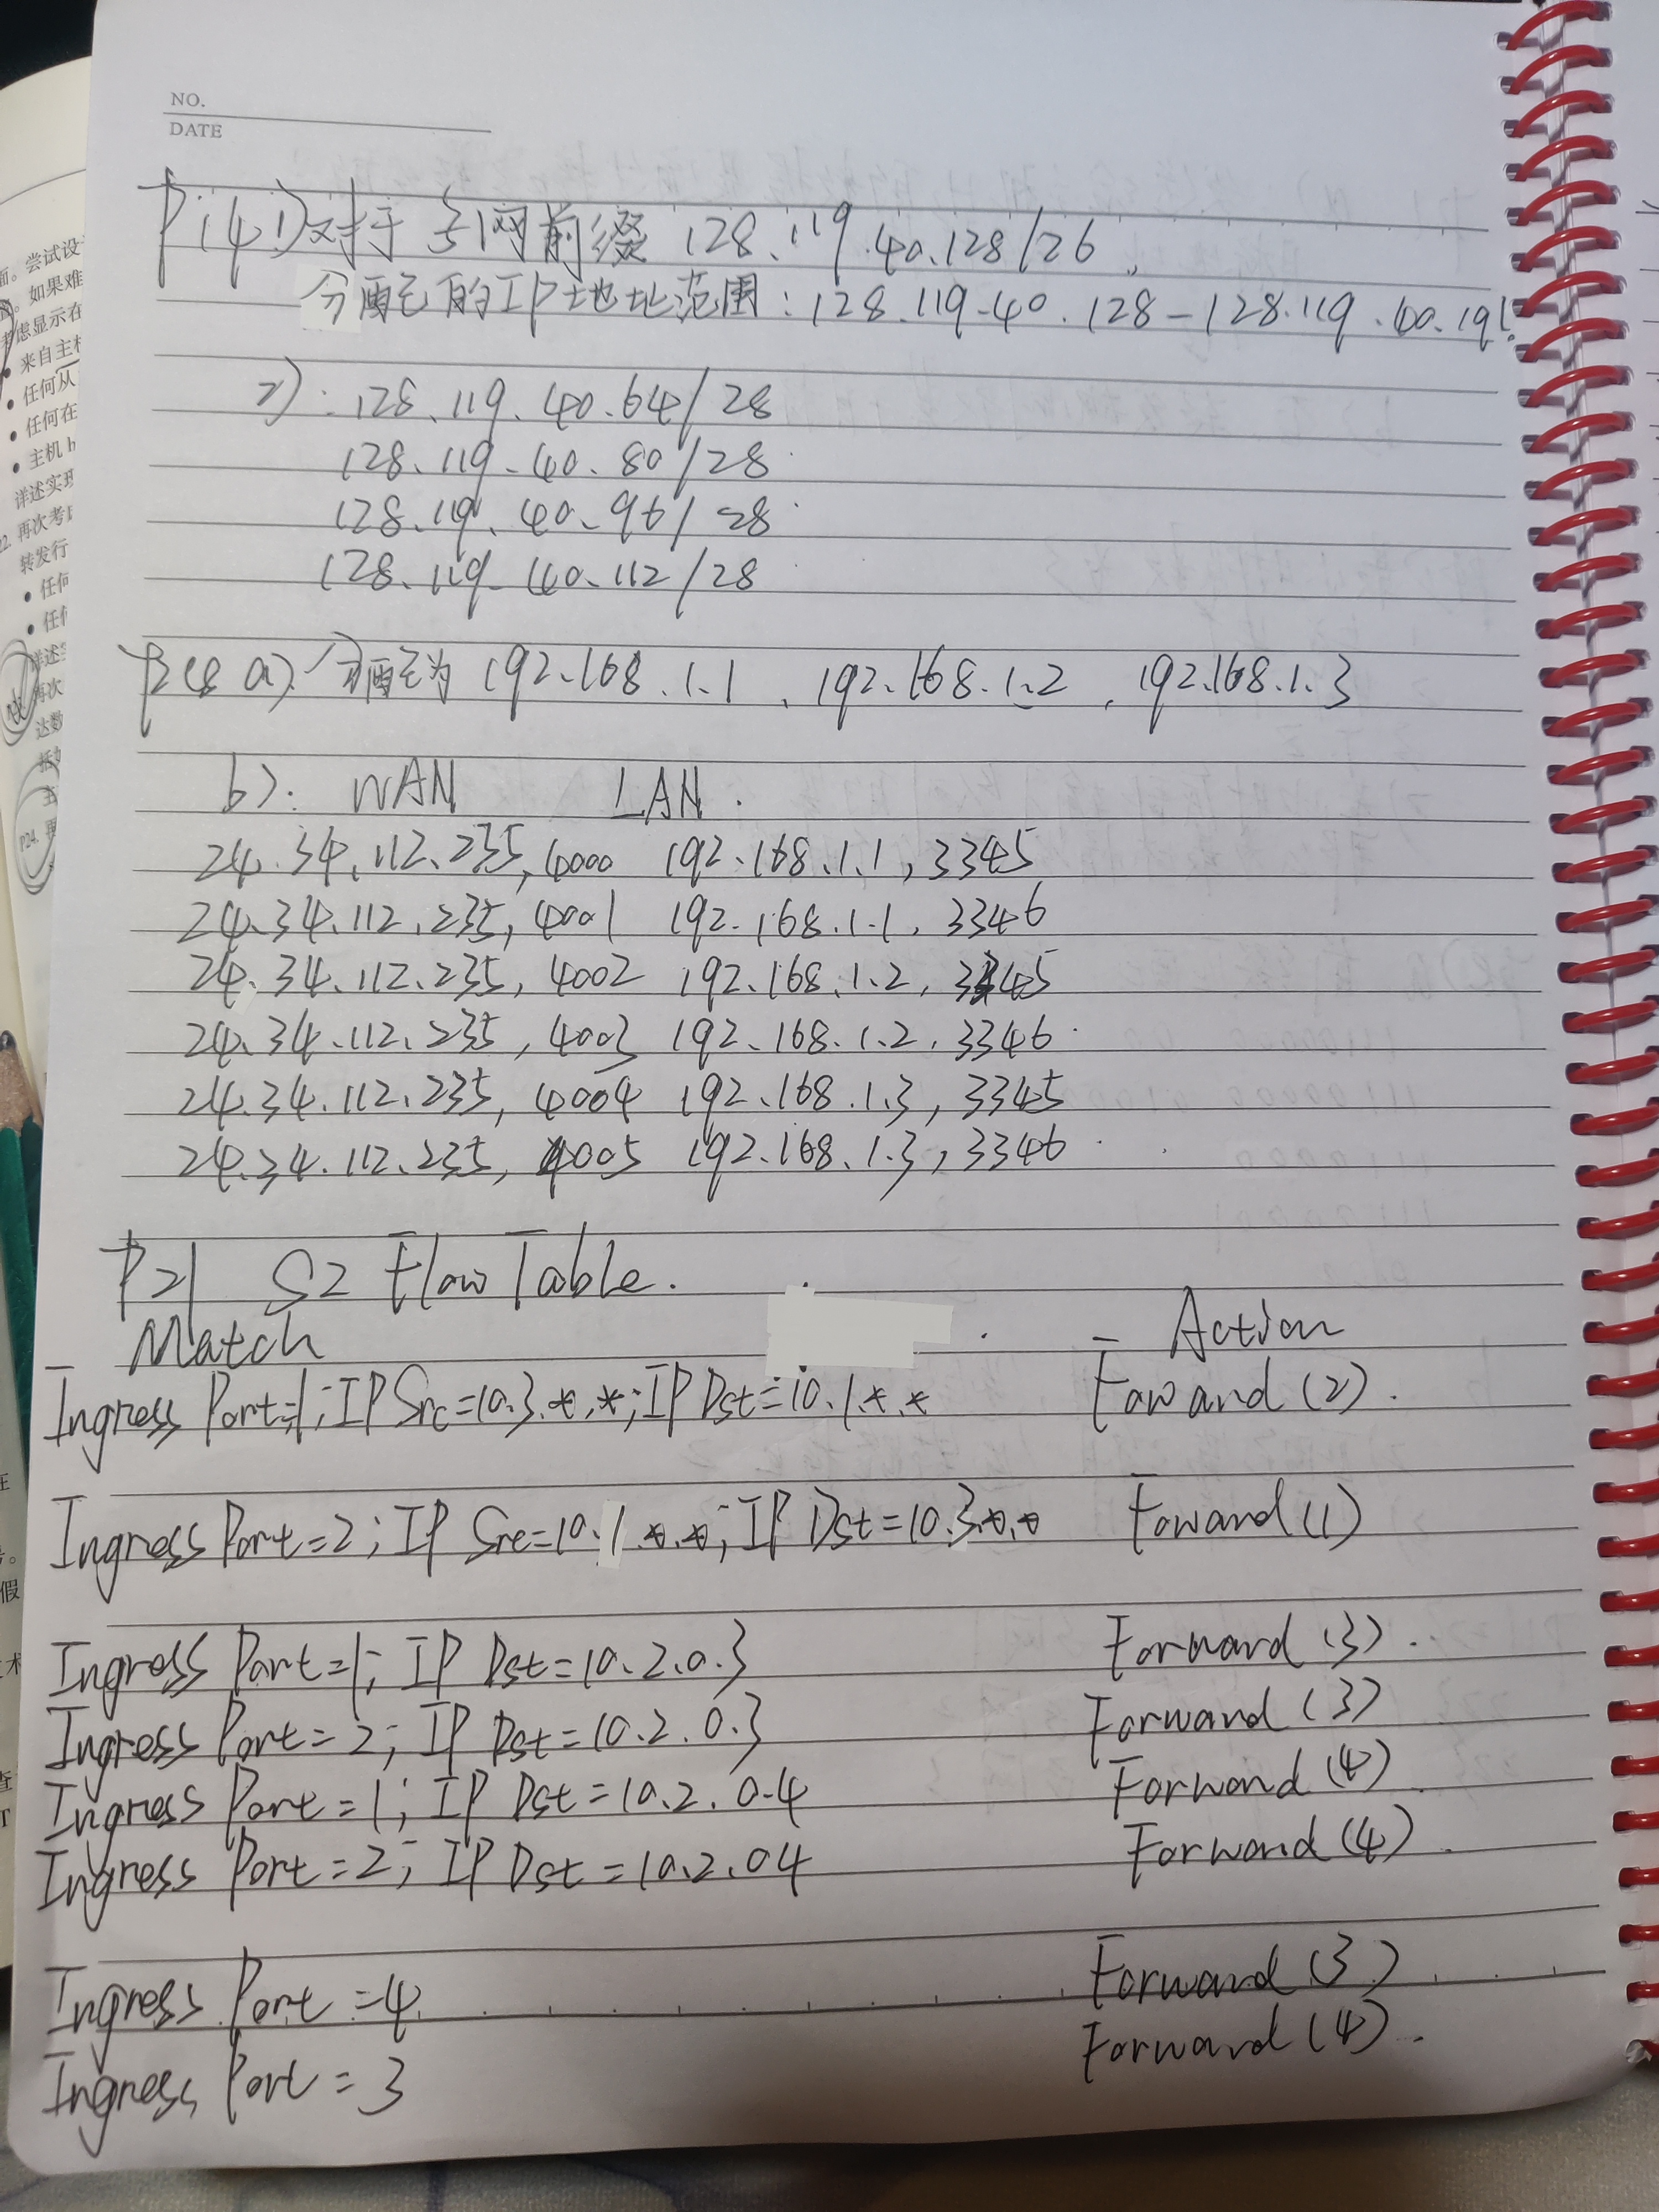 NO.
DATE
P14 1) 对于子网前缀 128.119.40.128/26,
分配的IP地址范围: 128.119.40.128-128.119.40.191
2): 128.119.40.64/28
128.119.40.80/28
128.119.40.96/28
128.119.40.112/28
a). 分配为 192.168.1.1, 192.168.1.2, 192.168.1.3
b): WAN LAN.
24.34.112.235, 4000 192.168.1.1, 3345
24.34.112.235, 4001 192.168.1.1, 3346
24.34.112.235, 4002 192.168.1.2, 3345
24.34.112.235, 4003 192.168.1.2, 3346
24.34.112.235, 4004 192.168.1.3, 3345
24.34.112.235, 4005 192.168.1.3, 3346
P21 S2 Flow Table.
Match Action
Ingress Port=1; IP Src=10.3.*.*; IP Dst=10.1.*.* Foward (2).
Ingress Port=2; IP Src=10.1.*.*; IP Dst=10.3.*.* Foward (1)
Ingress Port=1; IP Dst=10.2.0.3 Forward (3).
Ingress Port=2; IP Dst=10.2.0.3 Forward (3)
Ingress Port=1; IP Dst=10.2.0.4 Forward (4)
Ingress Port=2; IP Dst=10.2.04 Forward (4).
Ingress Port=4. Forward (3)
Ingress Port=3 Forward (4).
面。尝试设
。如果难
考虑显示在
• 来自主
• 任何从
• 任何在
• 主机 h
详述实现
再次考
转发行
• 任何
• 任
详述
再次
达数
P24. 再